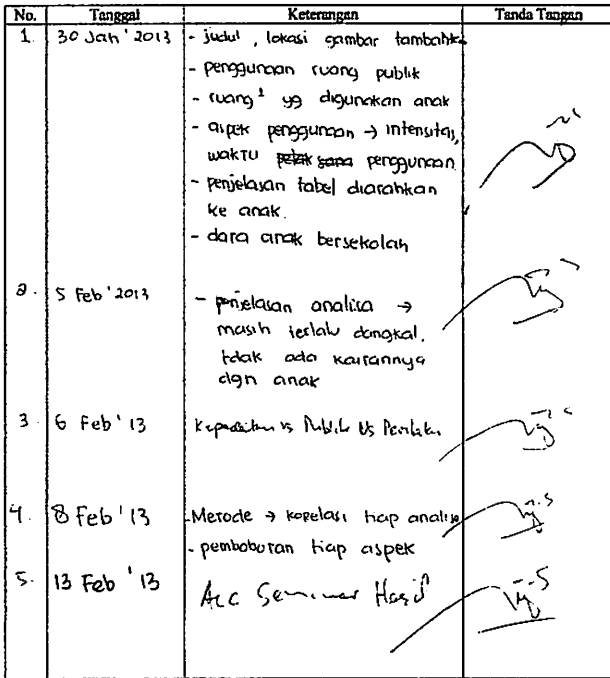 No. Tanggal Keterangan Tanda Tangan
1. 30 Jan ' 2013 - judul , lokasi gambar tambahk
- penggunaan ruang publik
- ruang² yg digunakan anak
- aspek penggunaan → intensitas,
waktu penggunaan
- penjelasan tabel diarahkan
ke anak.
- data anak bersekolah
2. 5 Feb ' 2013 - penjelasan analisa →
masih terlalu dangkal.
tdak ada kaitannya
dgn anak
3. 6 Feb ' 13 Kepadatan vs Publik vs Perilaku
4. 8 Feb ' 13 - Metode → korelasi tiap analisa
- pembobotan tiap aspek
5. 13 Feb ' 13 Acc Seminar Hasil